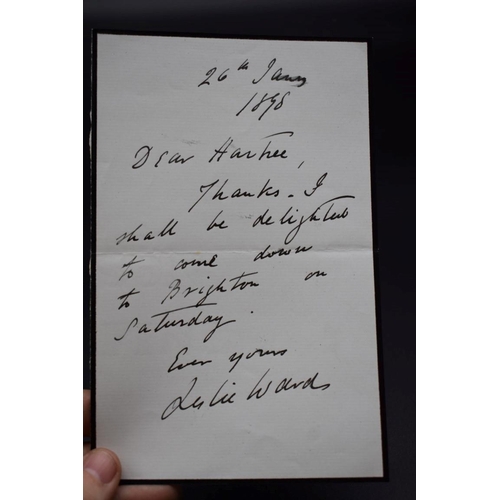 26th Jany
1898
Dear Hartree,
Thanks. I
shall be delighted
to come down
to Brighton on
Saturday.
Ever yours
Leslie Ward